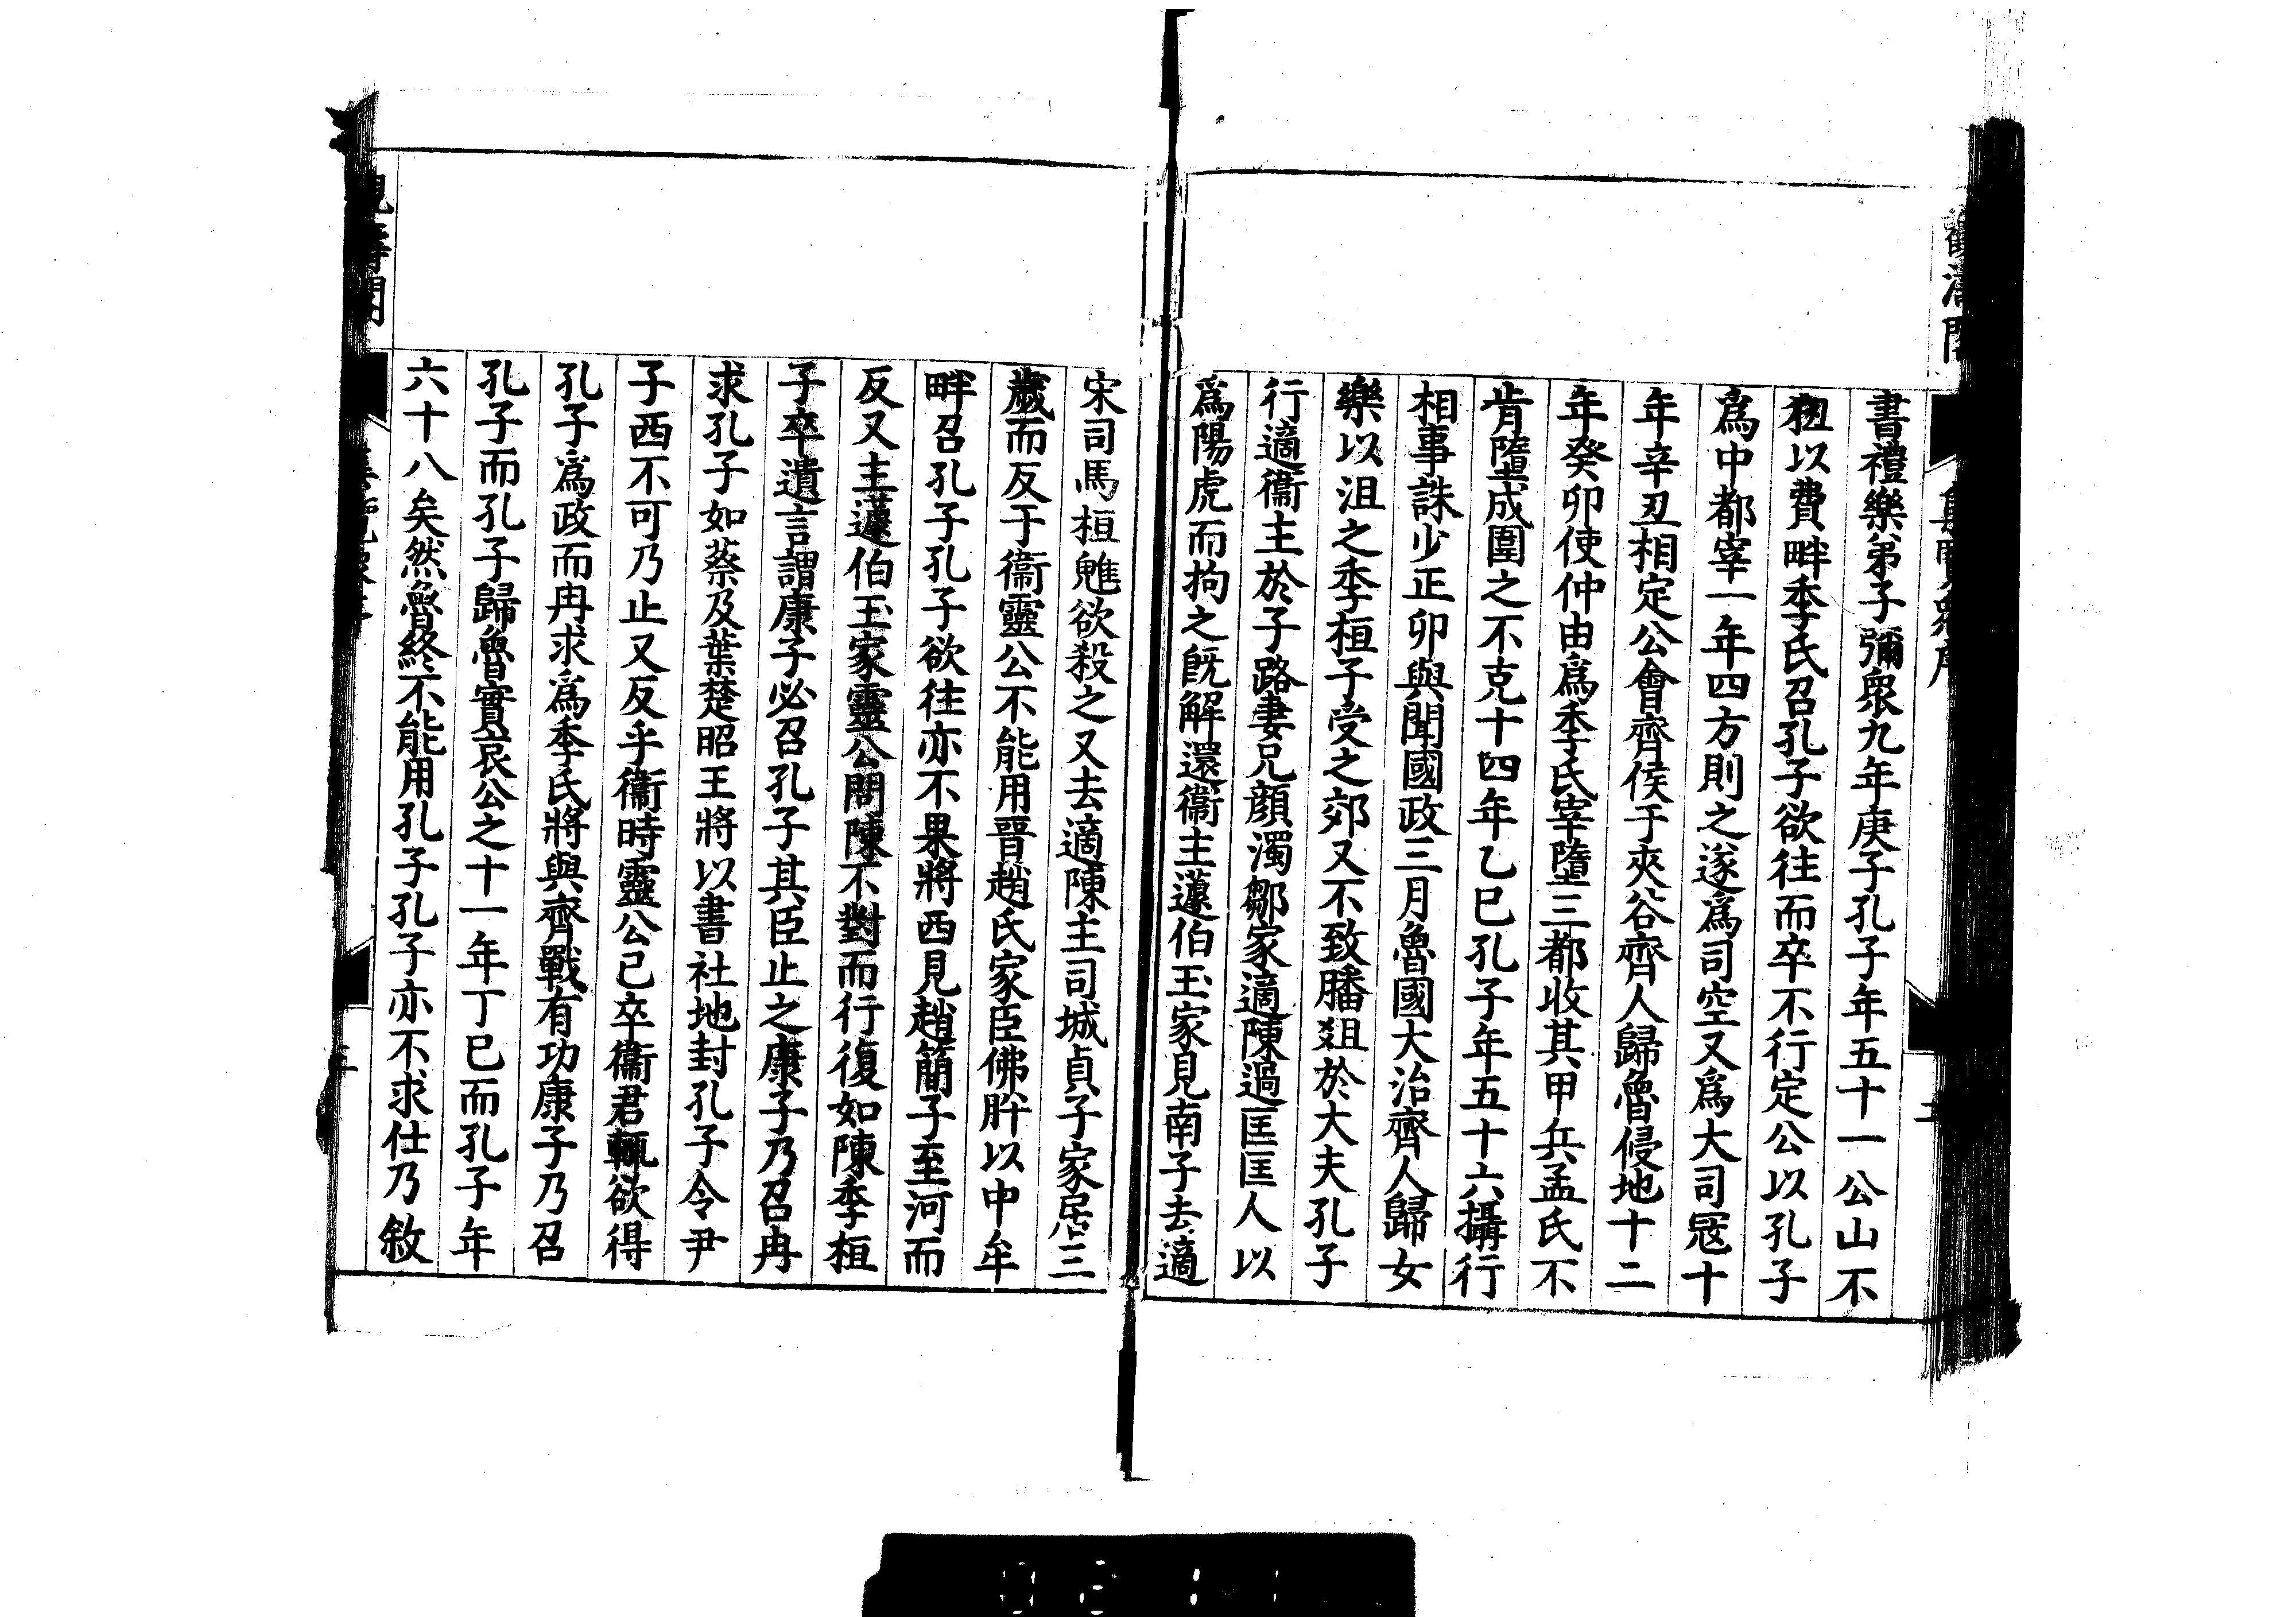 書禮樂弟子彌眾九年庚子孔子年五十一公山不
狃以費畔季氏召孔子欲往而卒不行定公以孔子
爲中都宰一年四方則之遂爲司空又爲大司寇十
年辛丑相定公會齊侯于夾谷齊人歸魯侵地十二
年癸卯使仲由爲季氏宰墮三都收其甲兵孟氏不
肯墮成圍之不克十四年乙巳孔子年五十六攝行
相事誅少正卯與聞國政三月魯國大治齊人歸女
樂以沮之季桓子受之郊又不致膰俎於大夫孔子
行適衞主於子路妻兄顏濁鄒家適陳過匡匡人以
爲陽虎而拘之旣解還衞主蘧伯玉家見南子去適
宋司馬桓魋欲殺之又去適陳主司城貞子家居三
歲而反于衞靈公不能用晉趙氏家臣佛肸以中牟
畔召孔子孔子欲往亦不果將西見趙簡子至河而
反又主蘧伯玉家靈公問陳不對而行復如陳季桓
子卒遺言謂康子必召孔子其臣止之康子乃召冉
求孔子如蔡及葉楚昭王將以書社地封孔子令尹
子西不可乃止又反乎衞時靈公已卒衞君輒欲得
孔子爲政而冉求爲季氏將與齊戰有功康子乃召
孔子而孔子歸魯實哀公之十一年丁巳而孔子年
六十八矣然魯終不能用孔子孔子亦不求仕乃敘